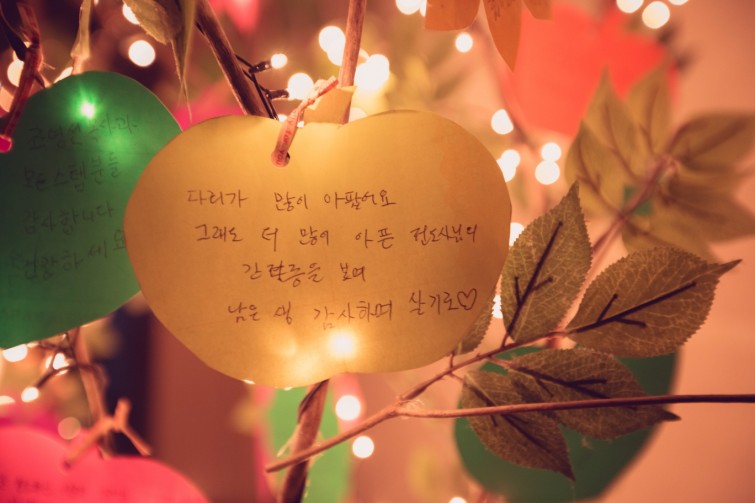 조
모든 스탭분들
감사합니다
건강하세요
다리가 많이 아팠어요
그래도 더 많이 아픈 전도사님의
간증을 보며
남은 생 감사하며 살기로♡